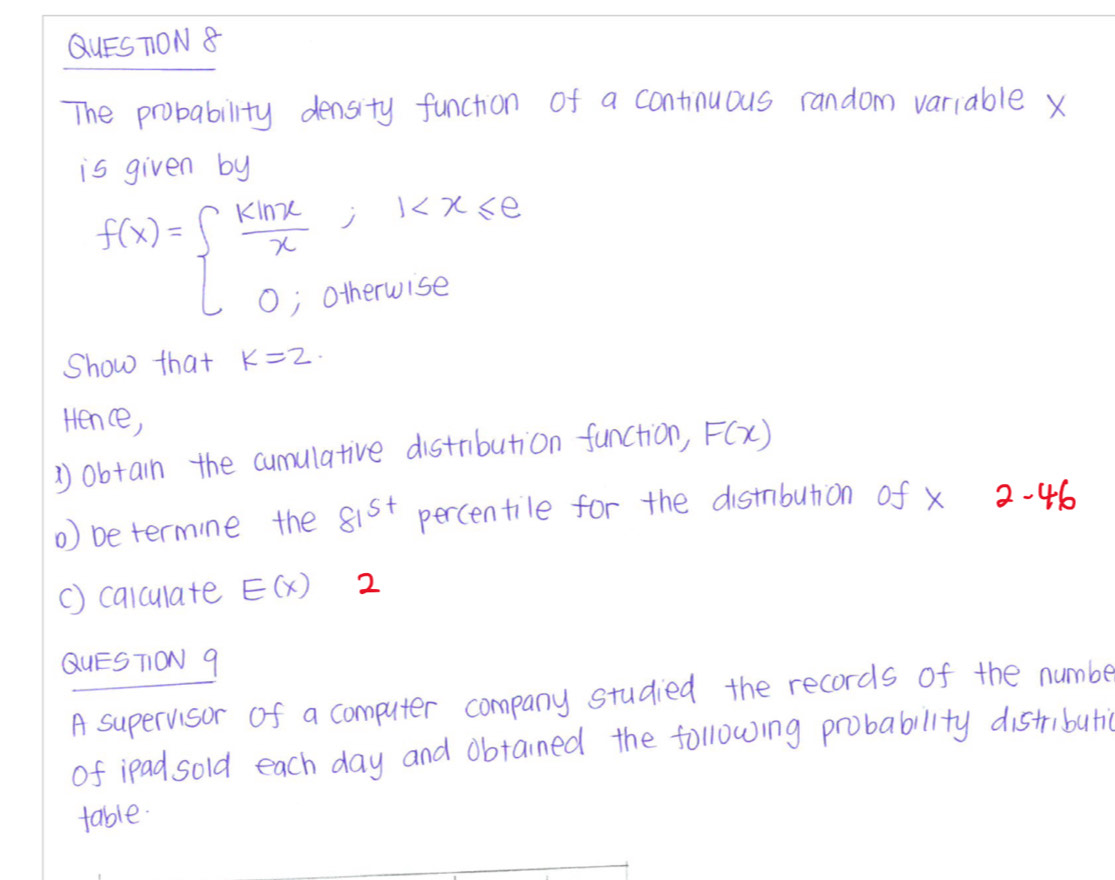 QUESTION 8
The probability density function of a continuous random variable X
is given by
f(x) = { Klnx / x ; 1 < x ≤ e
0 ; otherwise
Show that K=2.
Hence,
a) Obtain the cumulative distribution function, F(x)
b) Determine the 81st percentile for the distribution of X 2.46
c) calculate E(x) 2
QUESTION 9
A supervisor of a computer company studied the records of the numbe
of ipad sold each day and obtained the following probability distributio
table.